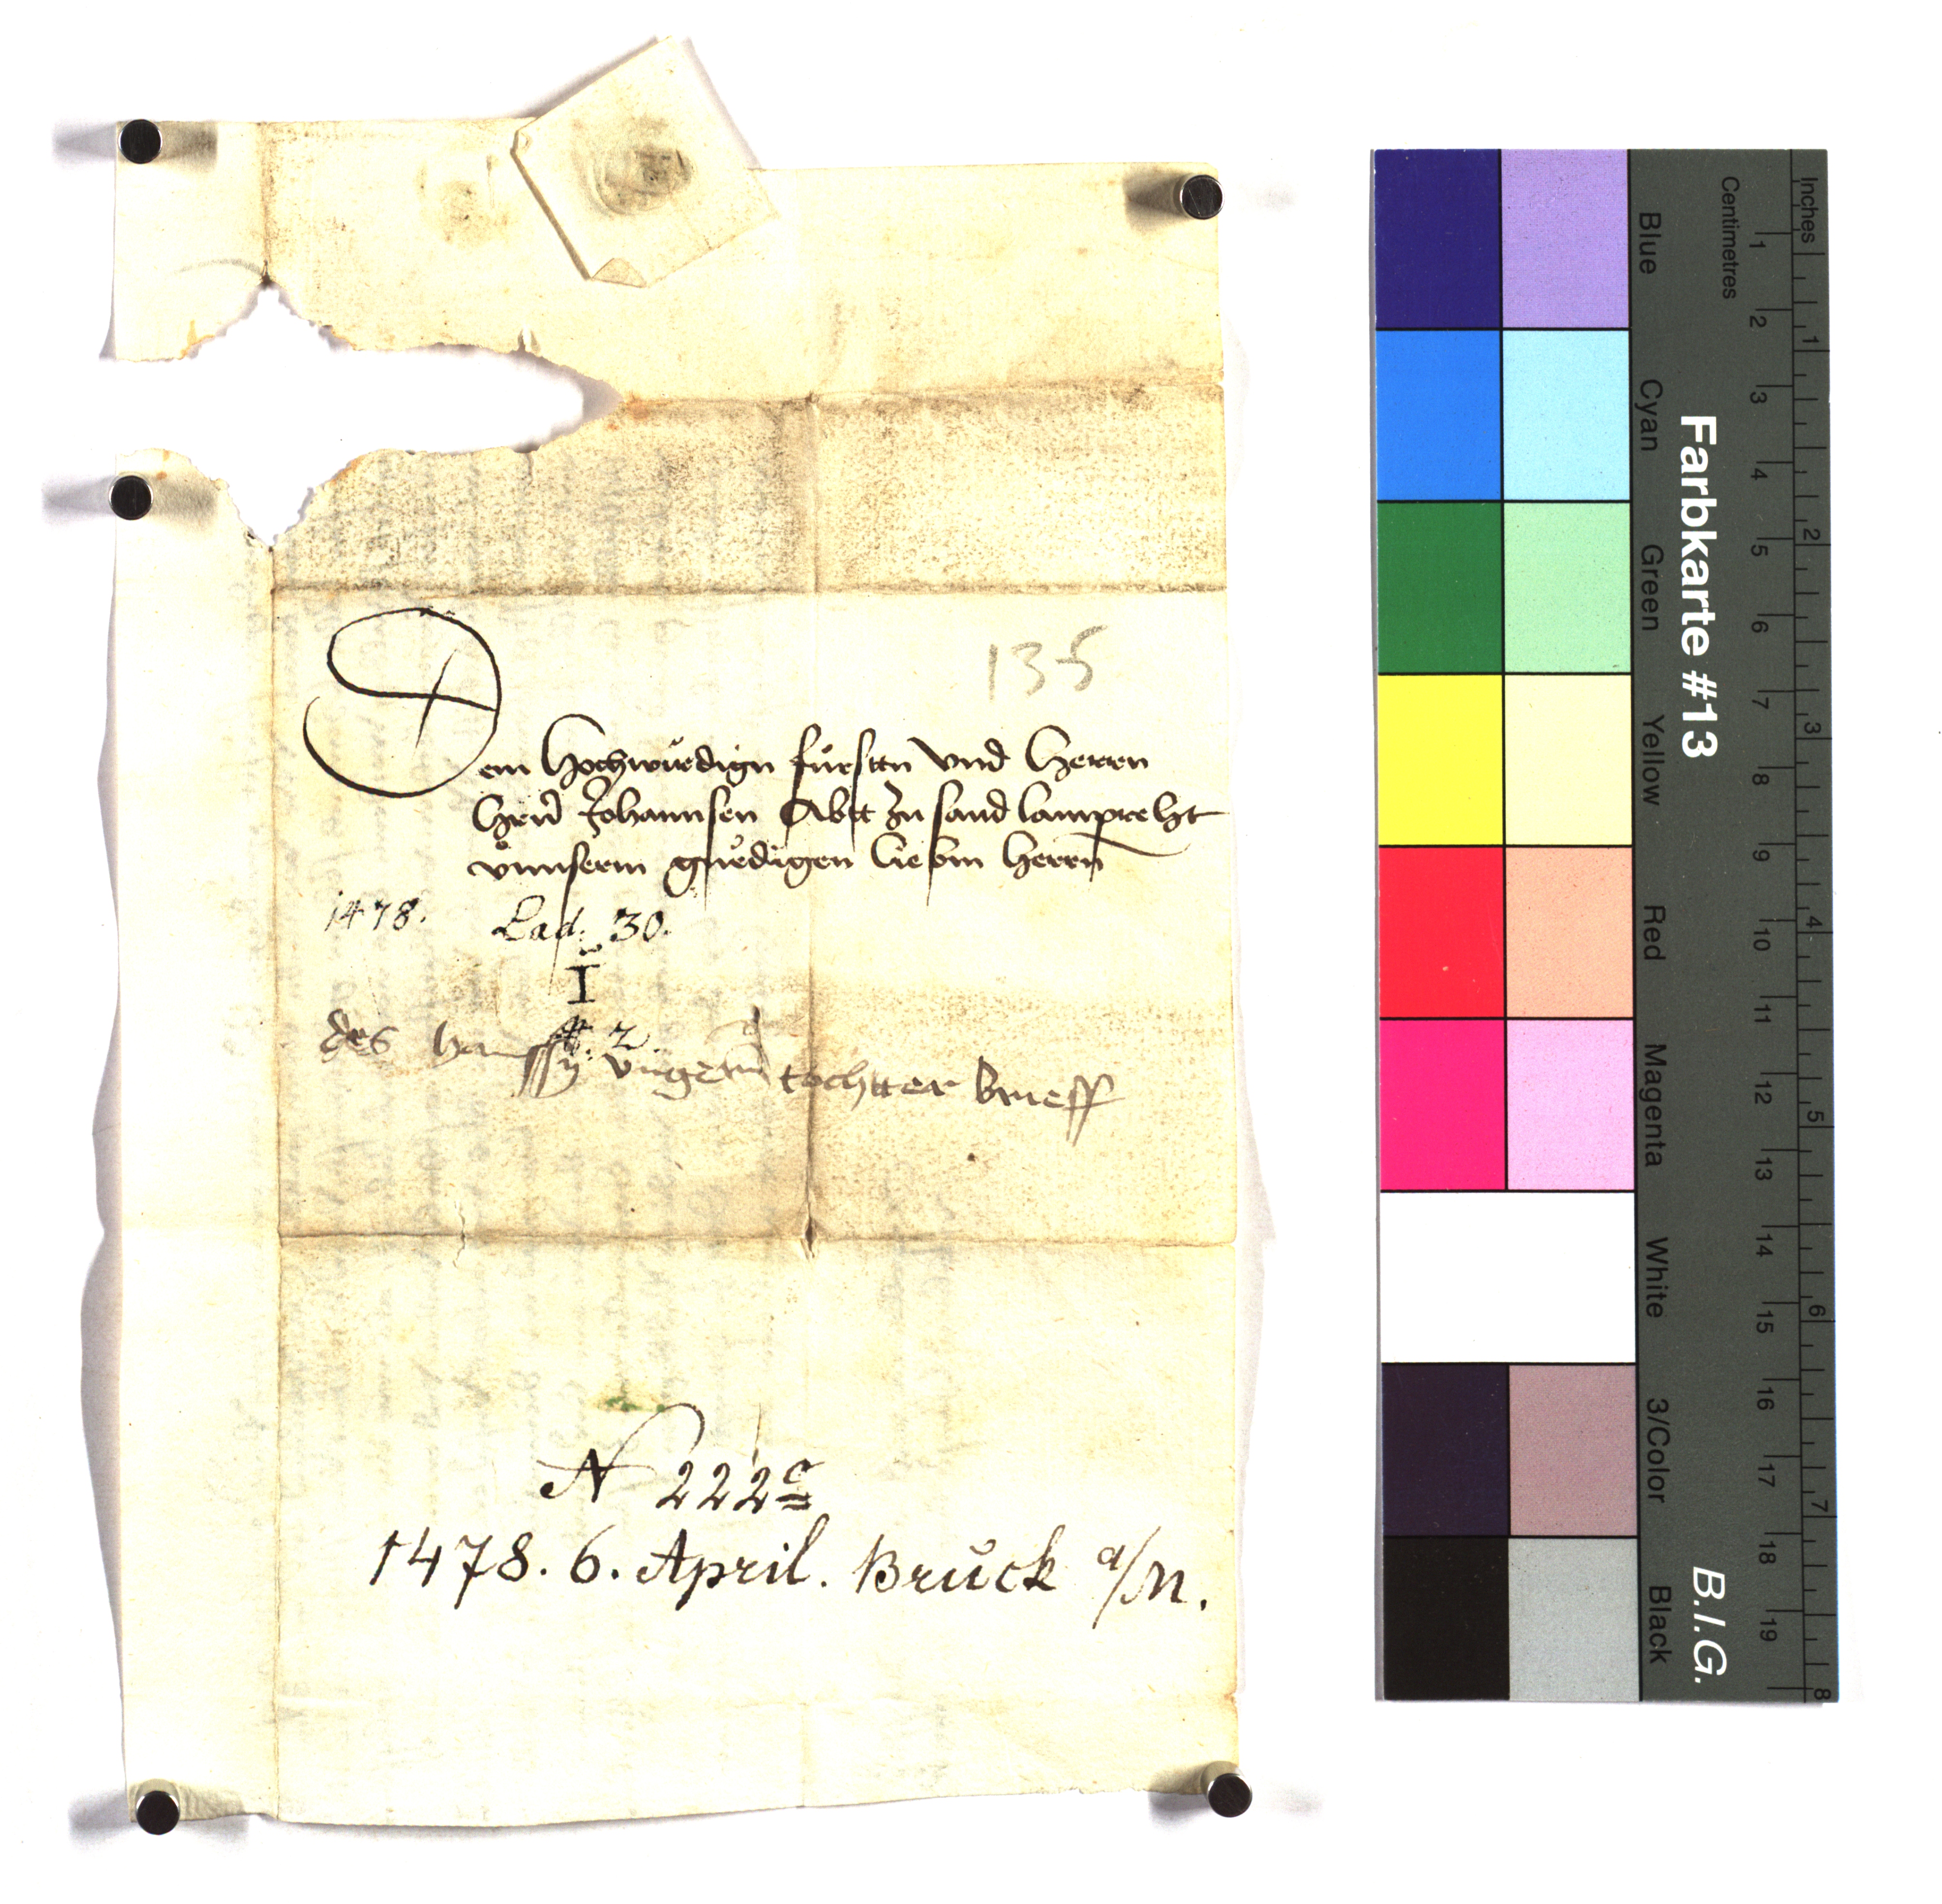 135
Dem Hochwirdign fürsten vnd Herren
Herrn Johannsen Abbt zu sand lamprecht
vnnserm gnedigen liebm herrn
1478. Lad. 30.
I
#. 2.
des hannssn tochtter brieff
N 222c
1478. 6. April. Bruck a/M.
Farbkarte #13
B.I.G.
Blue Cyan Green Yellow Red Magenta White 3/Color Black
Centimetres 1 2 3 4 5 6 7 8 9 10 11 12 13 14 15 16 17 18 19
Inches 1 2 3 4 5 6 7 8